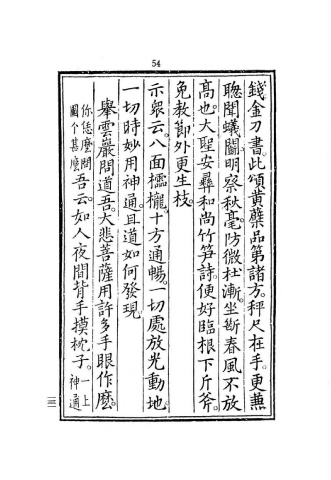 54
錢金刀書此頌黃蘗品第諸方。秤尺在手。更兼
聰聞蟻鬭。明察秋毫。防微杜漸。坐斷春風不放
高也。大聖安彝和尚竹笋詩。便好臨根下斤斧。
免教節外更生枝。
示衆云。八面櫺櫳。十方通暢。一切處放光動地。
一切時妙用神通。且道如何發現。
舉雲巖問道吾。大悲菩薩用許多手眼作麼。
你恁麼問
圖个甚麼吾云。如人夜間背手摸枕子。一上
神通
三一